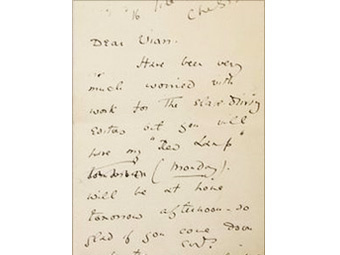 16
Dear Vian.
Have been very
much worried with
work for The slave driving
Editor but you will
have my "Red Lamp"
(Monday).
will be at home
tomorrow afternoon - so
glad if you come down